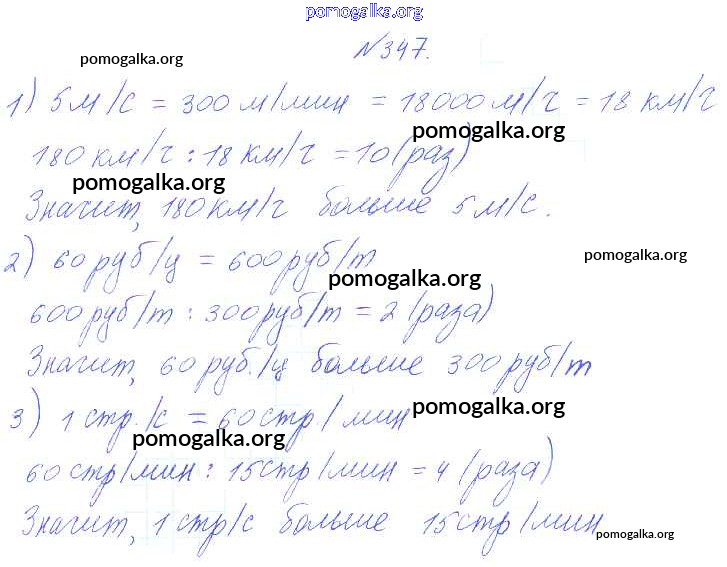 pomogalka.org
№347.
pomogalka.org
1) 5м/с = 300 м/мин = 18000м/ч = 18 км/ч
pomogalka.org
180 км/ч : 18 км/ч = 10 (раз)
pomogalka.org
Значит, 180 км/ч больше 5 м/с.
2) 60 руб/ц = 600 руб/т
pomogalka.org
pomogalka.org
600 руб/т : 300 руб/т = 2 (раза)
Значит, 60 руб./ц больше 300 руб/т
3) 1 стр./с = 60 стр./мин
pomogalka.org
pomogalka.org
60 стр/мин : 15стр/мин = 4 (раза)
Значит, 1 стр/с больше 15 стр/мин
pomogalka.org